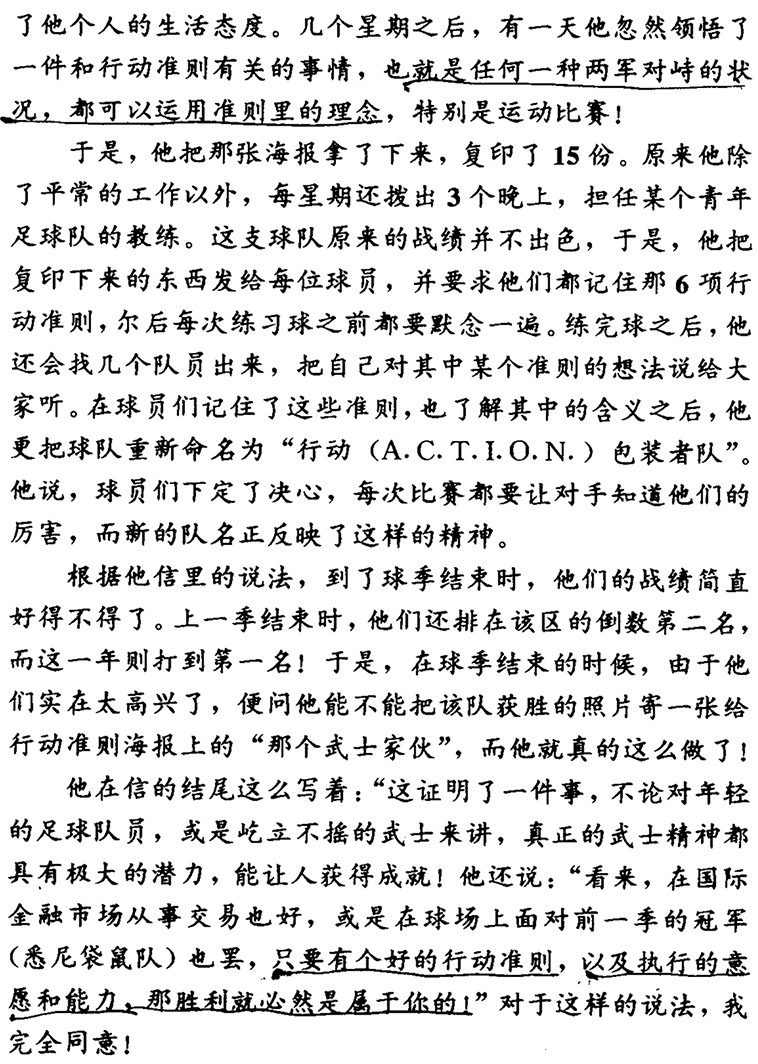 了他个人的生活态度。几个星期之后，有一天他忽然领悟了
一件和行动准则有关的事情，也就是任何一种两军对峙的状
况，都可以运用准则里的理念，特别是运动比赛！
于是，他把那张海报拿了下来，复印了 15 份。原来他除
了平常的工作以外，每星期还拨出 3 个晚上，担任某个青年
足球队的教练。这支球队原来的战绩并不出色，于是，他把
复印下来的东西发给每位球员，并要求他们都记住那 6 项行
动准则，尔后每次练习球之前都要默念一遍。练完球之后，他
还会找几个队员出来，把自己对其中某个准则的想法说给大
家听。在球员们记住了这些准则，也了解其中的含义之后，他
更把球队重新命名为“行动（A.C.T.I.O.N.）包装者队”。
他说，球员们下定了决心，每次比赛都要让对手知道他们的
厉害，而新的队名正反映了这样的精神。
根据他信里的说法，到了球季结束时，他们的战绩简直
好得不得了。上一季结束时，他们还排在该区的倒数第二名，
而这一年则打到第一名！于是，在球季结束的时候，由于他
们实在太高兴了，便问他能不能把该队获胜的照片寄一张给
行动准则海报上的“那个武士家伙”，而他就真的这么做了！
他在信的结尾这么写着：“这证明了一件事，不论对年轻
的足球队员，或是屹立不摇的武士来讲，真正的武士精神都
具有极大的潜力，能让人获得成就！他还说：“看来，在国际
金融市场从事交易也好，或是在球场上面对前一季的冠军
（悉尼袋鼠队）也罢，只要有个好的行动准则，以及执行的意
愿和能力，那胜利就必然是属于你的！”对于这样的说法，我
完全同意！